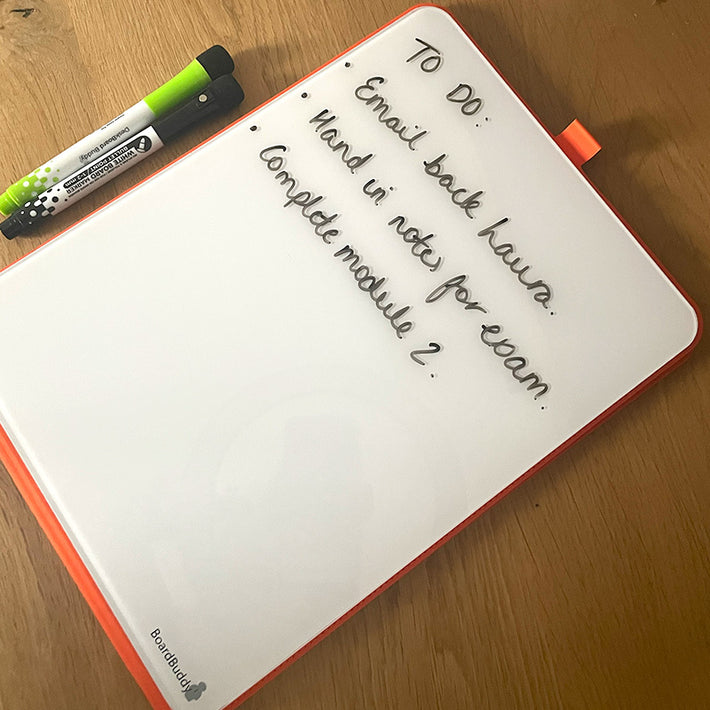 TO DO:
• Email back Laura.
• Hand in notes for exam.
• Complete module 2.
BoardBuddy
DeskBoard Buddy
WHITE BOARD MARKER